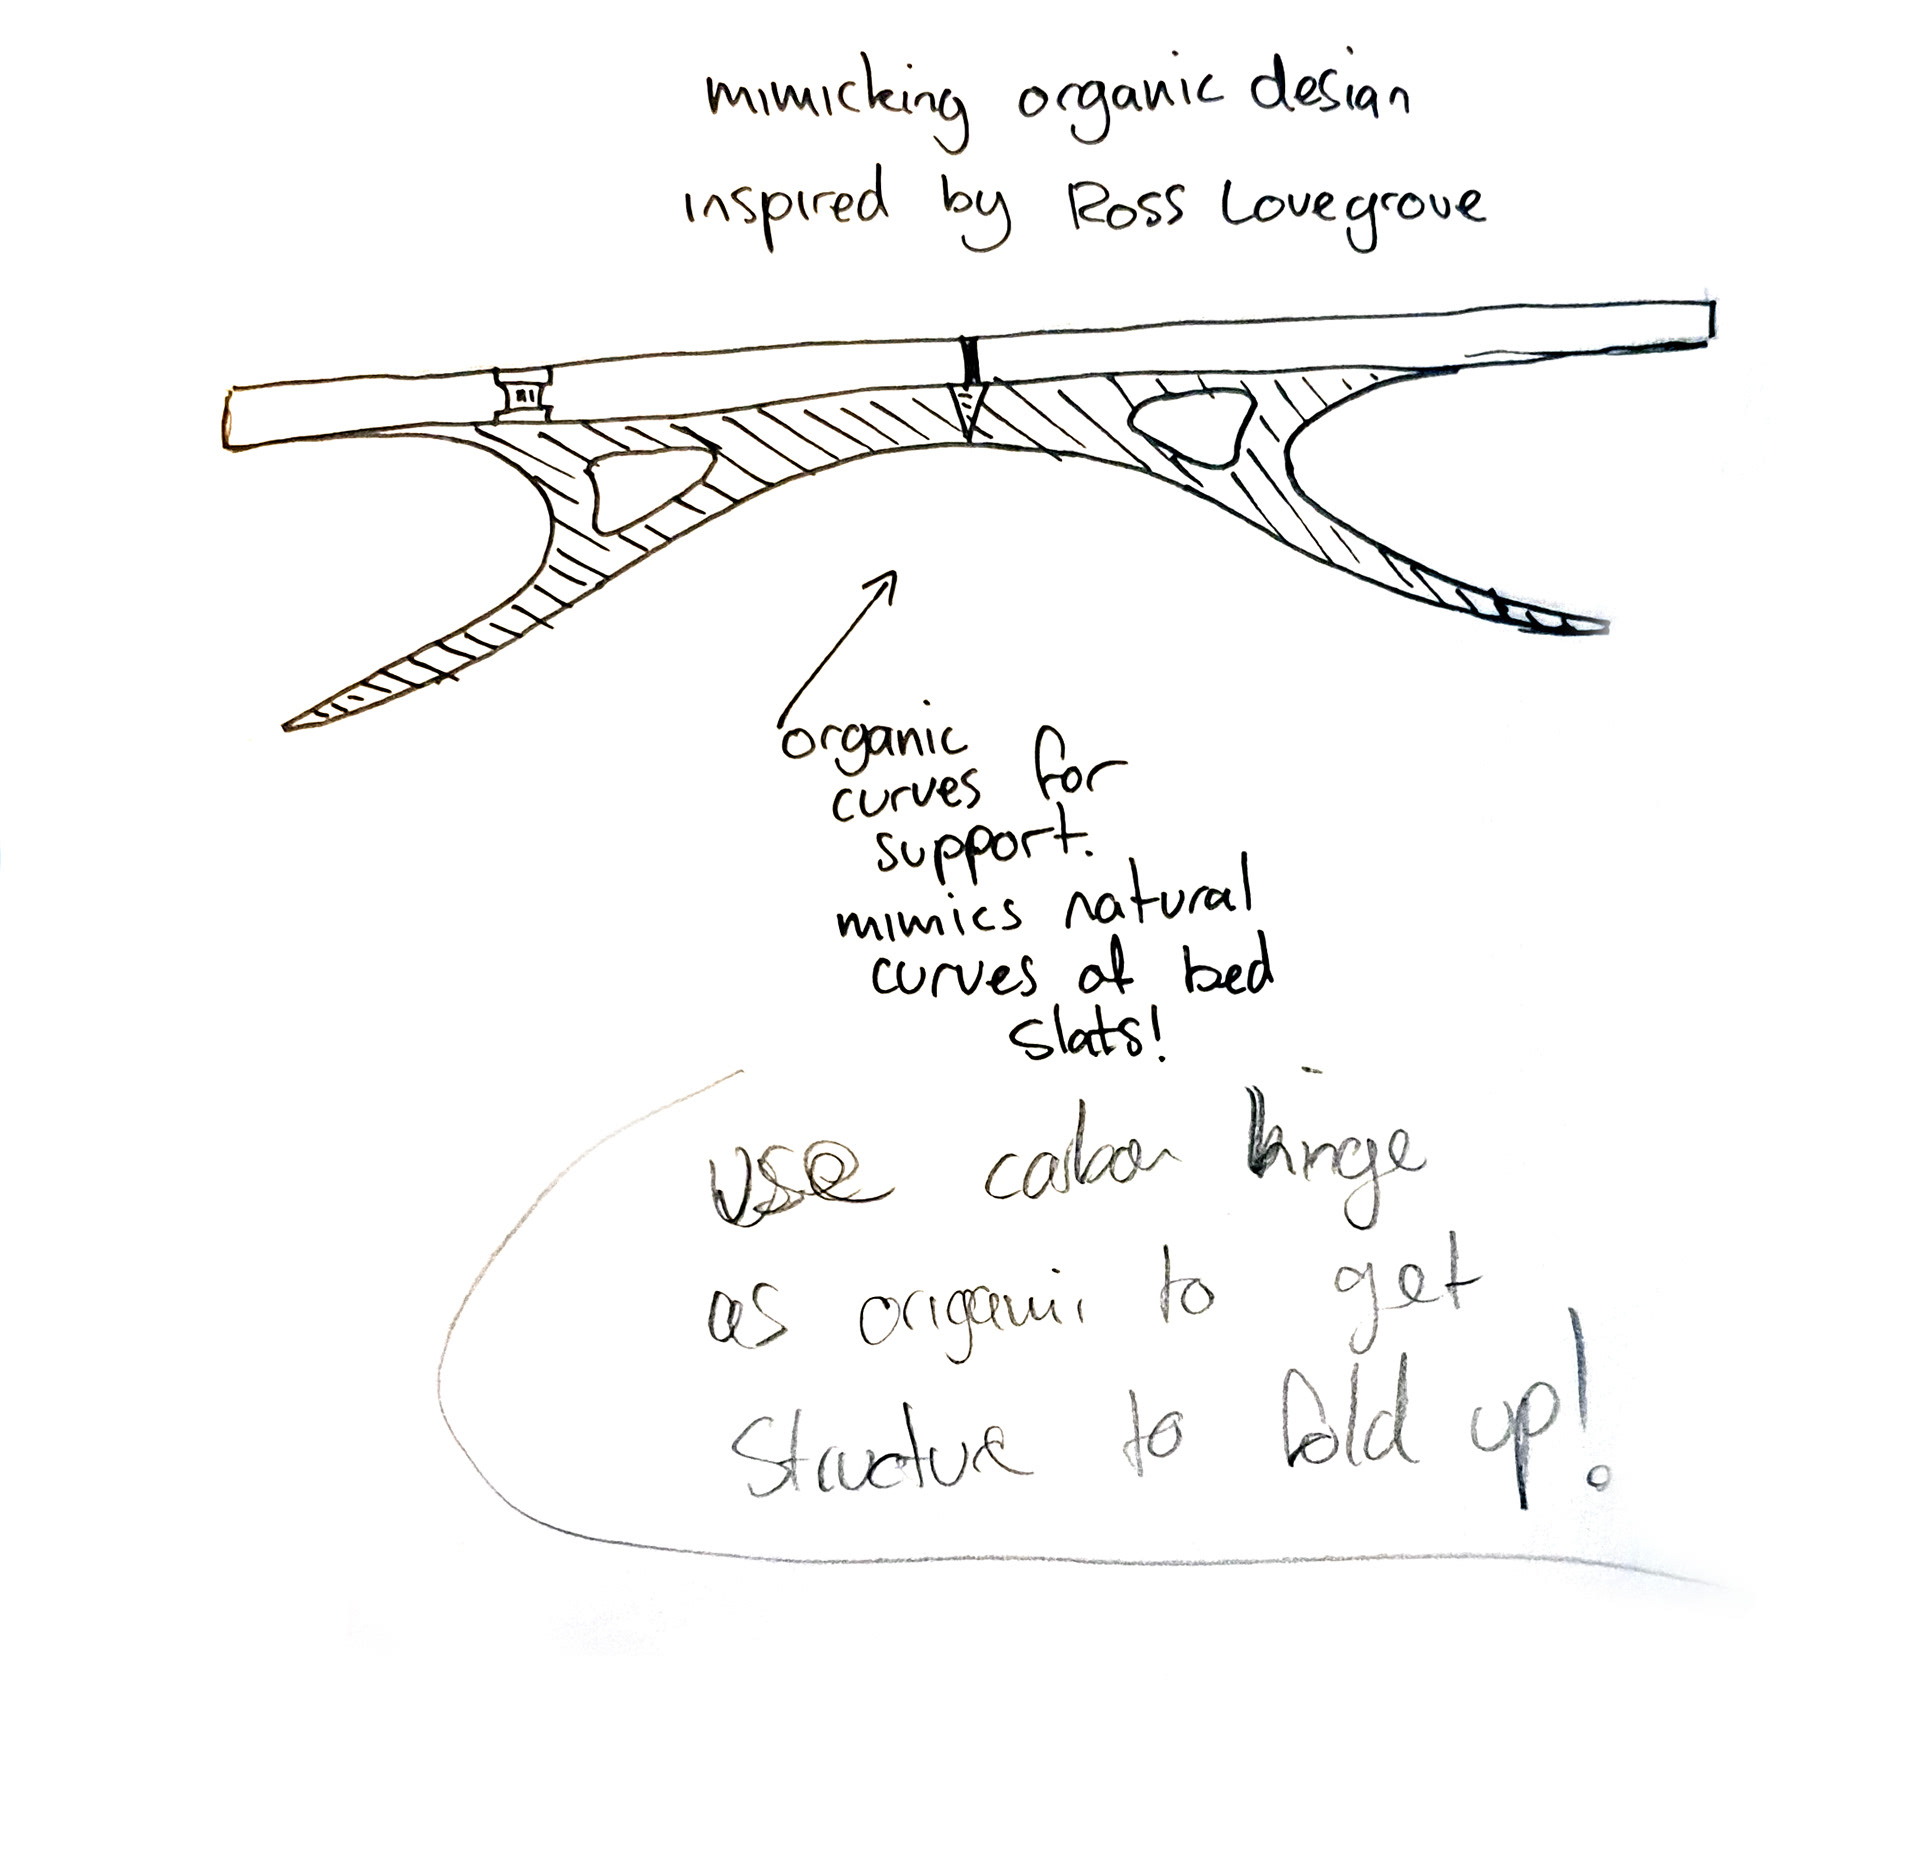 mimicking organic design
inspired by Ross Lovegrove
organic
curves for
support.
mimics natural
curves of bed
slats!
use carbon hinge
as origami to get
structure to fold up!